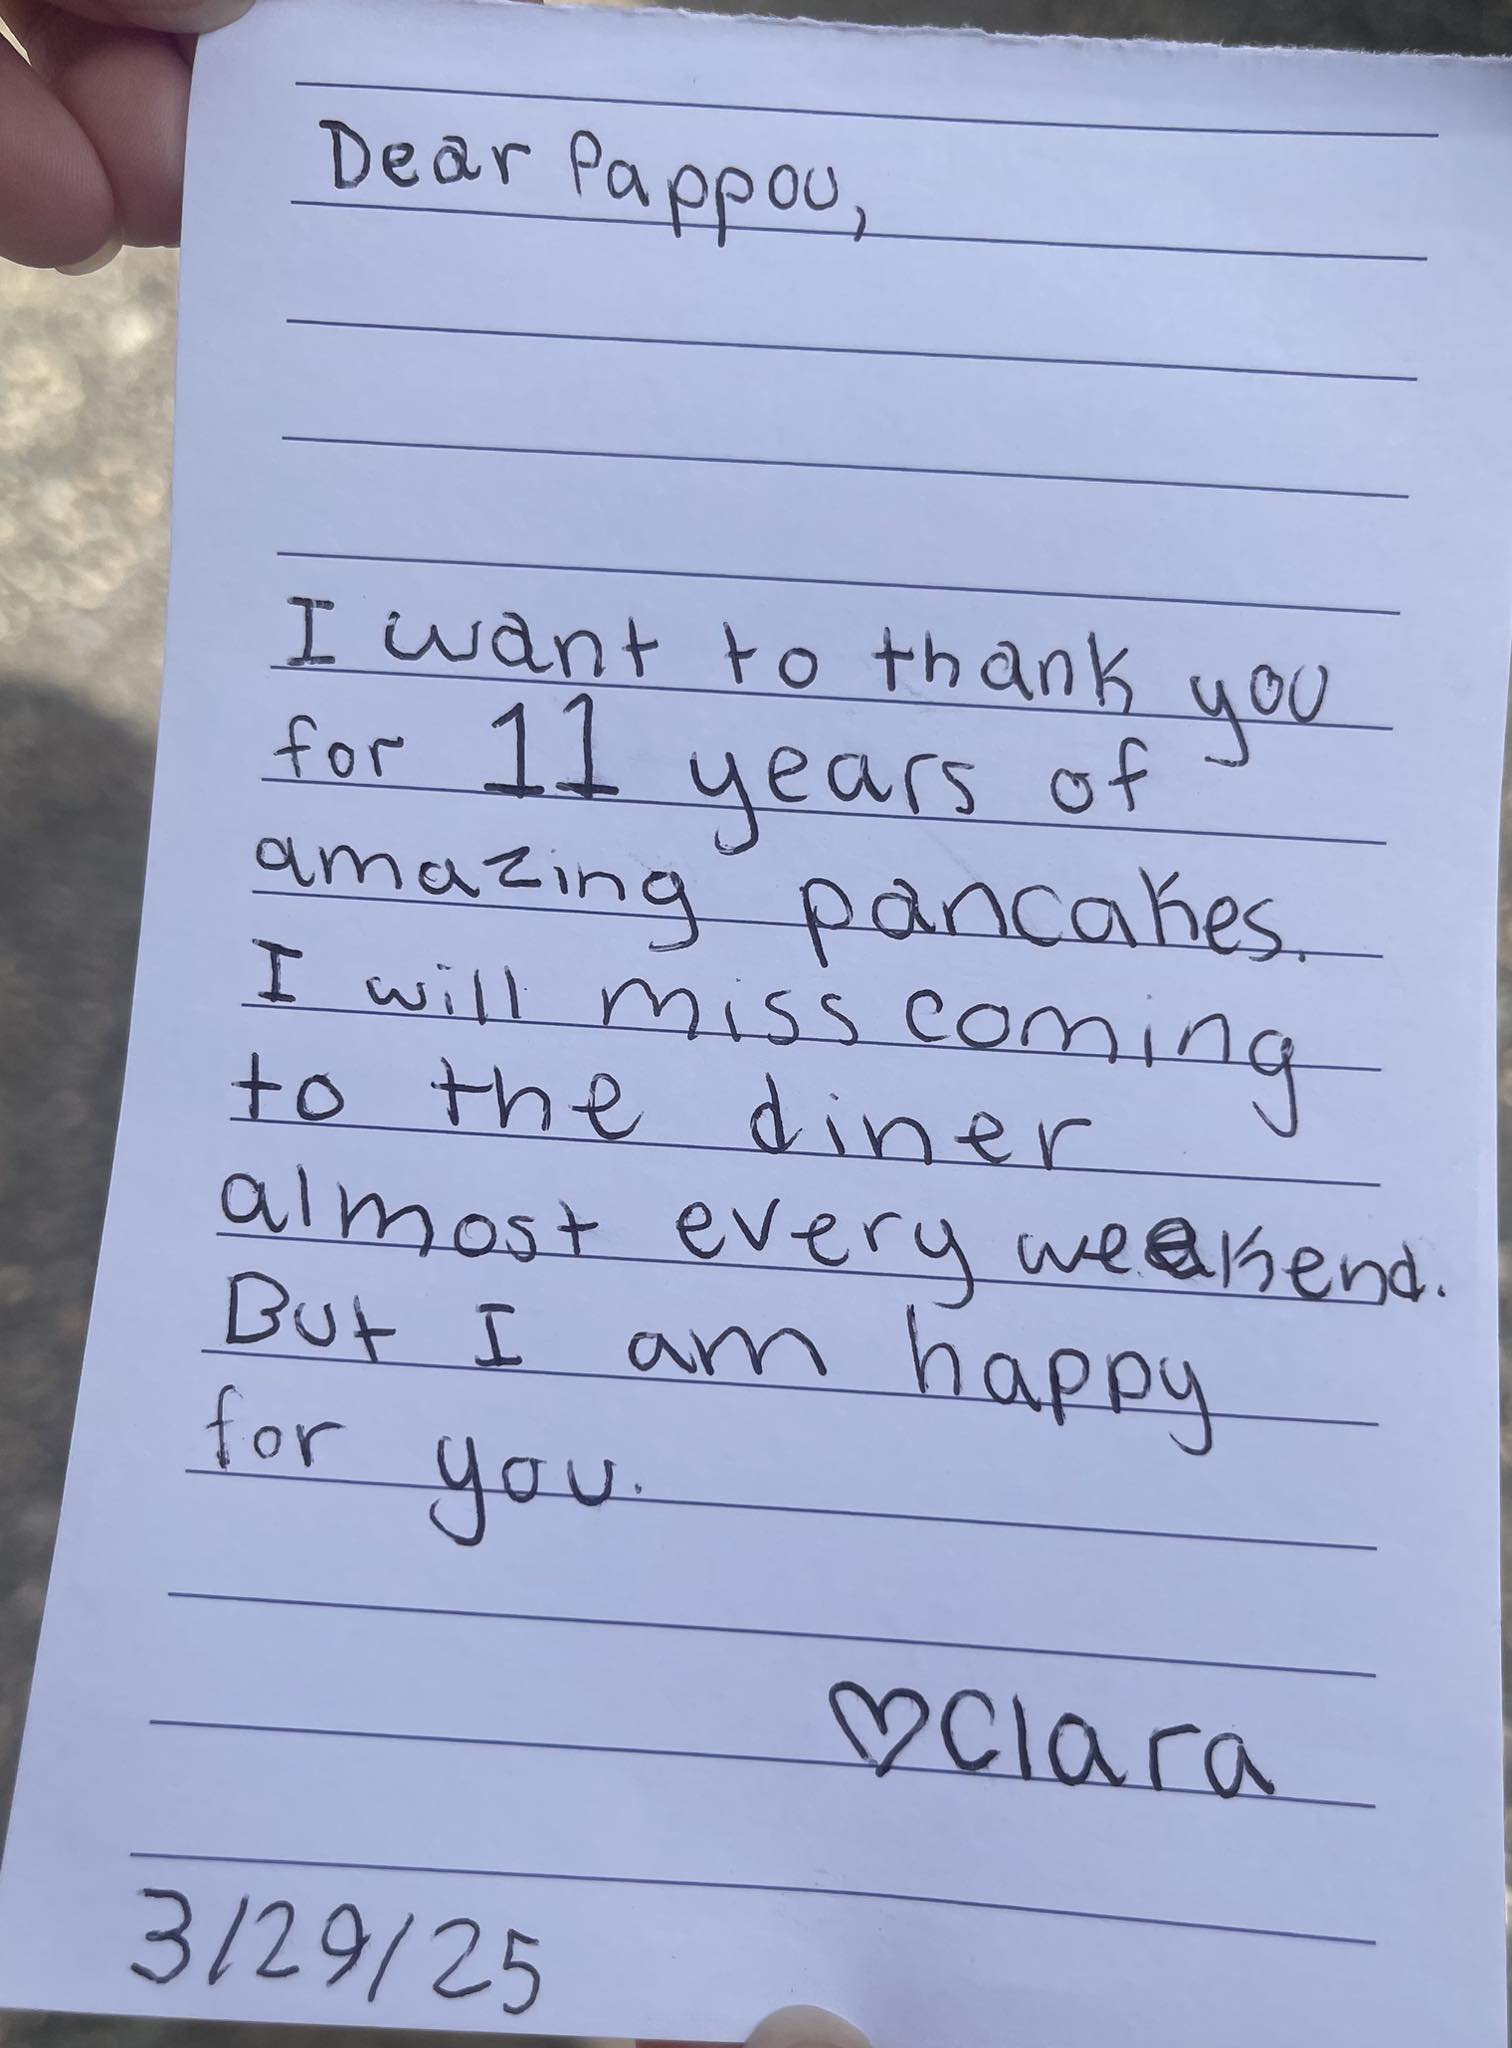 Dear Pappou,
I want to thank you
for 11 years of
amazing pancakes.
I will miss coming
to the diner
almost every weekend.
But I am happy
for you.
♡Clara
3/29/25